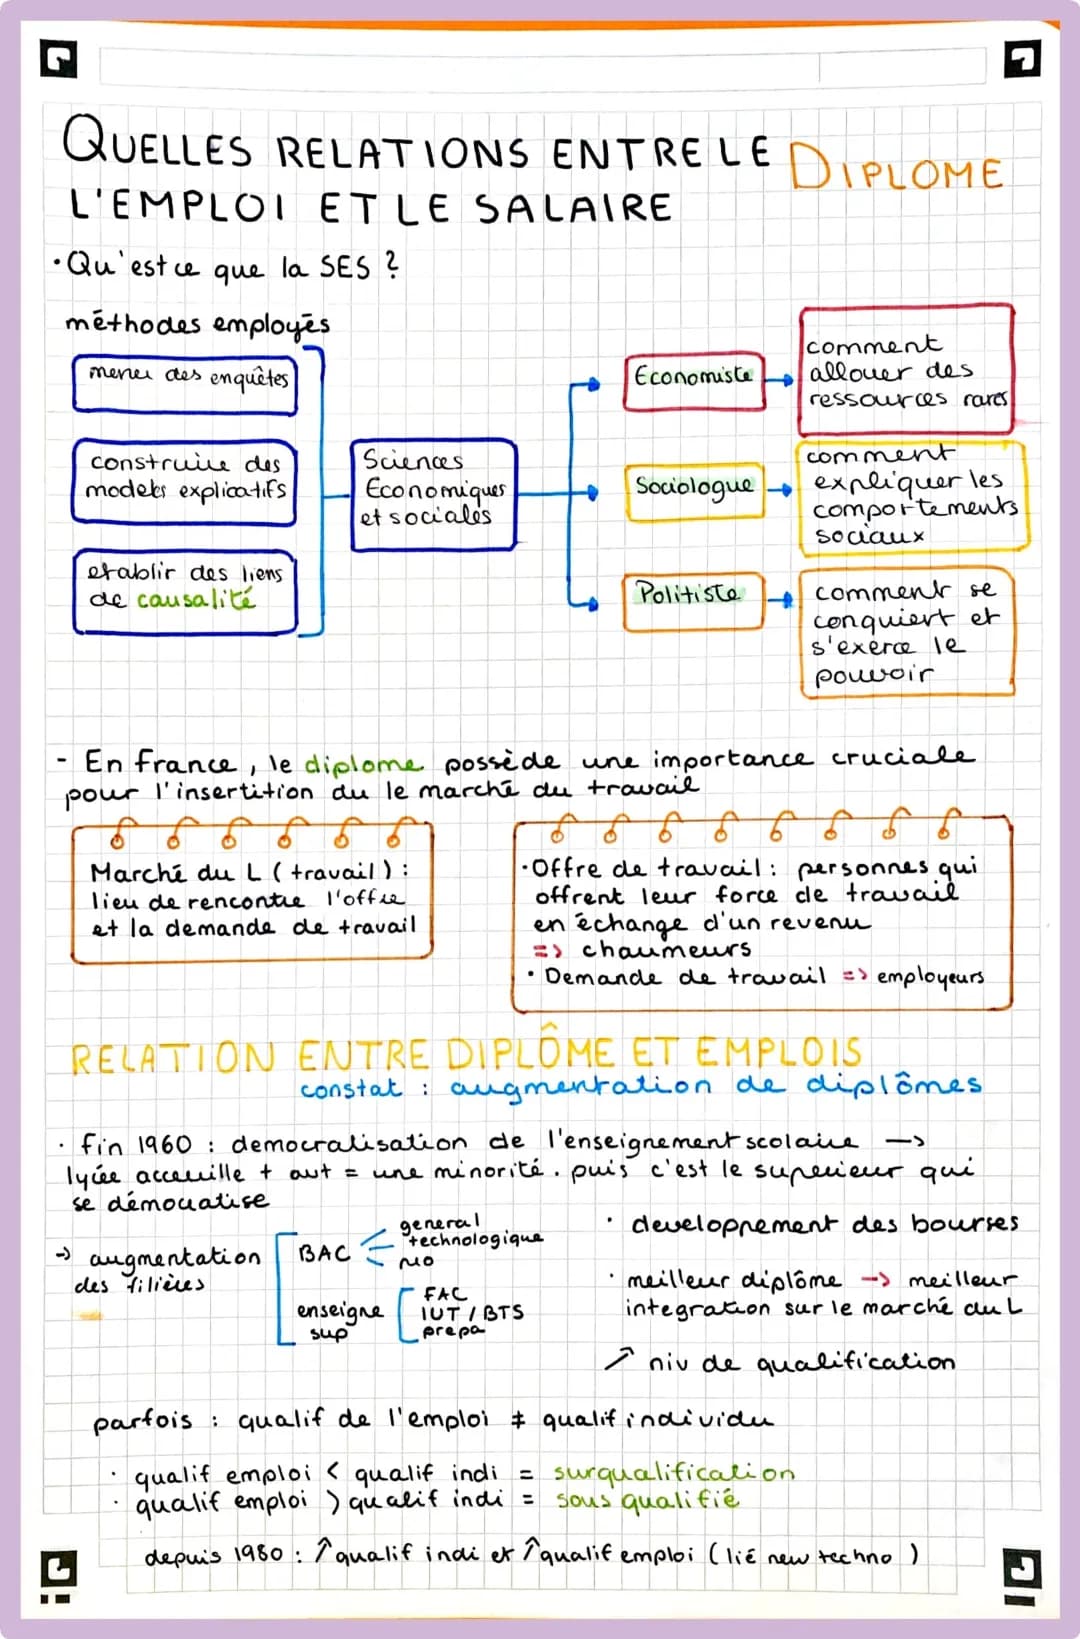 QUELLES RELATIONS ENTRE LE DIPLOME
L'EMPLOI ET LE SALAIRE
• Qu'est ce que la SES ?
méthodes employés
mener des enquêtes
construire des
modeles explicatifs
etablir des liens
de causalité
Sciences
Economiques
et sociales
Economiste
comment
allouer des
ressources rares
Sociologue
comment
expliquer les
comportements
sociaux
Politiste
comment se
conquiert et
s'exerce le
pouvoir
- En France, le diplome possède une importance cruciale
pour l'insertition du le marché du travail
Marché du L (travail) :
lieu de rencontre l'offre
et la demande de travail
• Offre de travail : personnes qui
offrent leur force de travail
en échange d'un revenu
=> chaumeurs
• Demande de travail => employeurs
RELATION ENTRE DIPLÔME ET EMPLOIS
constat : augmentation de diplômes
• fin 1960 : democralisation de l'enseignement scolaire ->
lycée acceuille + aut = une minorité. puis c'est le superieur qui
se démocratise
-> augmentation
des filières
BAC
general
technologique
pro
enseigne
sup
FAC
IUT / BTS
prepa
• developprement des bourses
• meilleur diplôme -> meilleur
integration sur le marché du L
↗ niv de qualification
parfois : qualif de l'emploi ≠ qualif individu
• qualif emploi < qualif indi = surqualification
• qualif emploi > qualif indi = sous qualifié
depuis 1980 : ↑ qualif indi et ↑ qualif emploi (lié new techno)